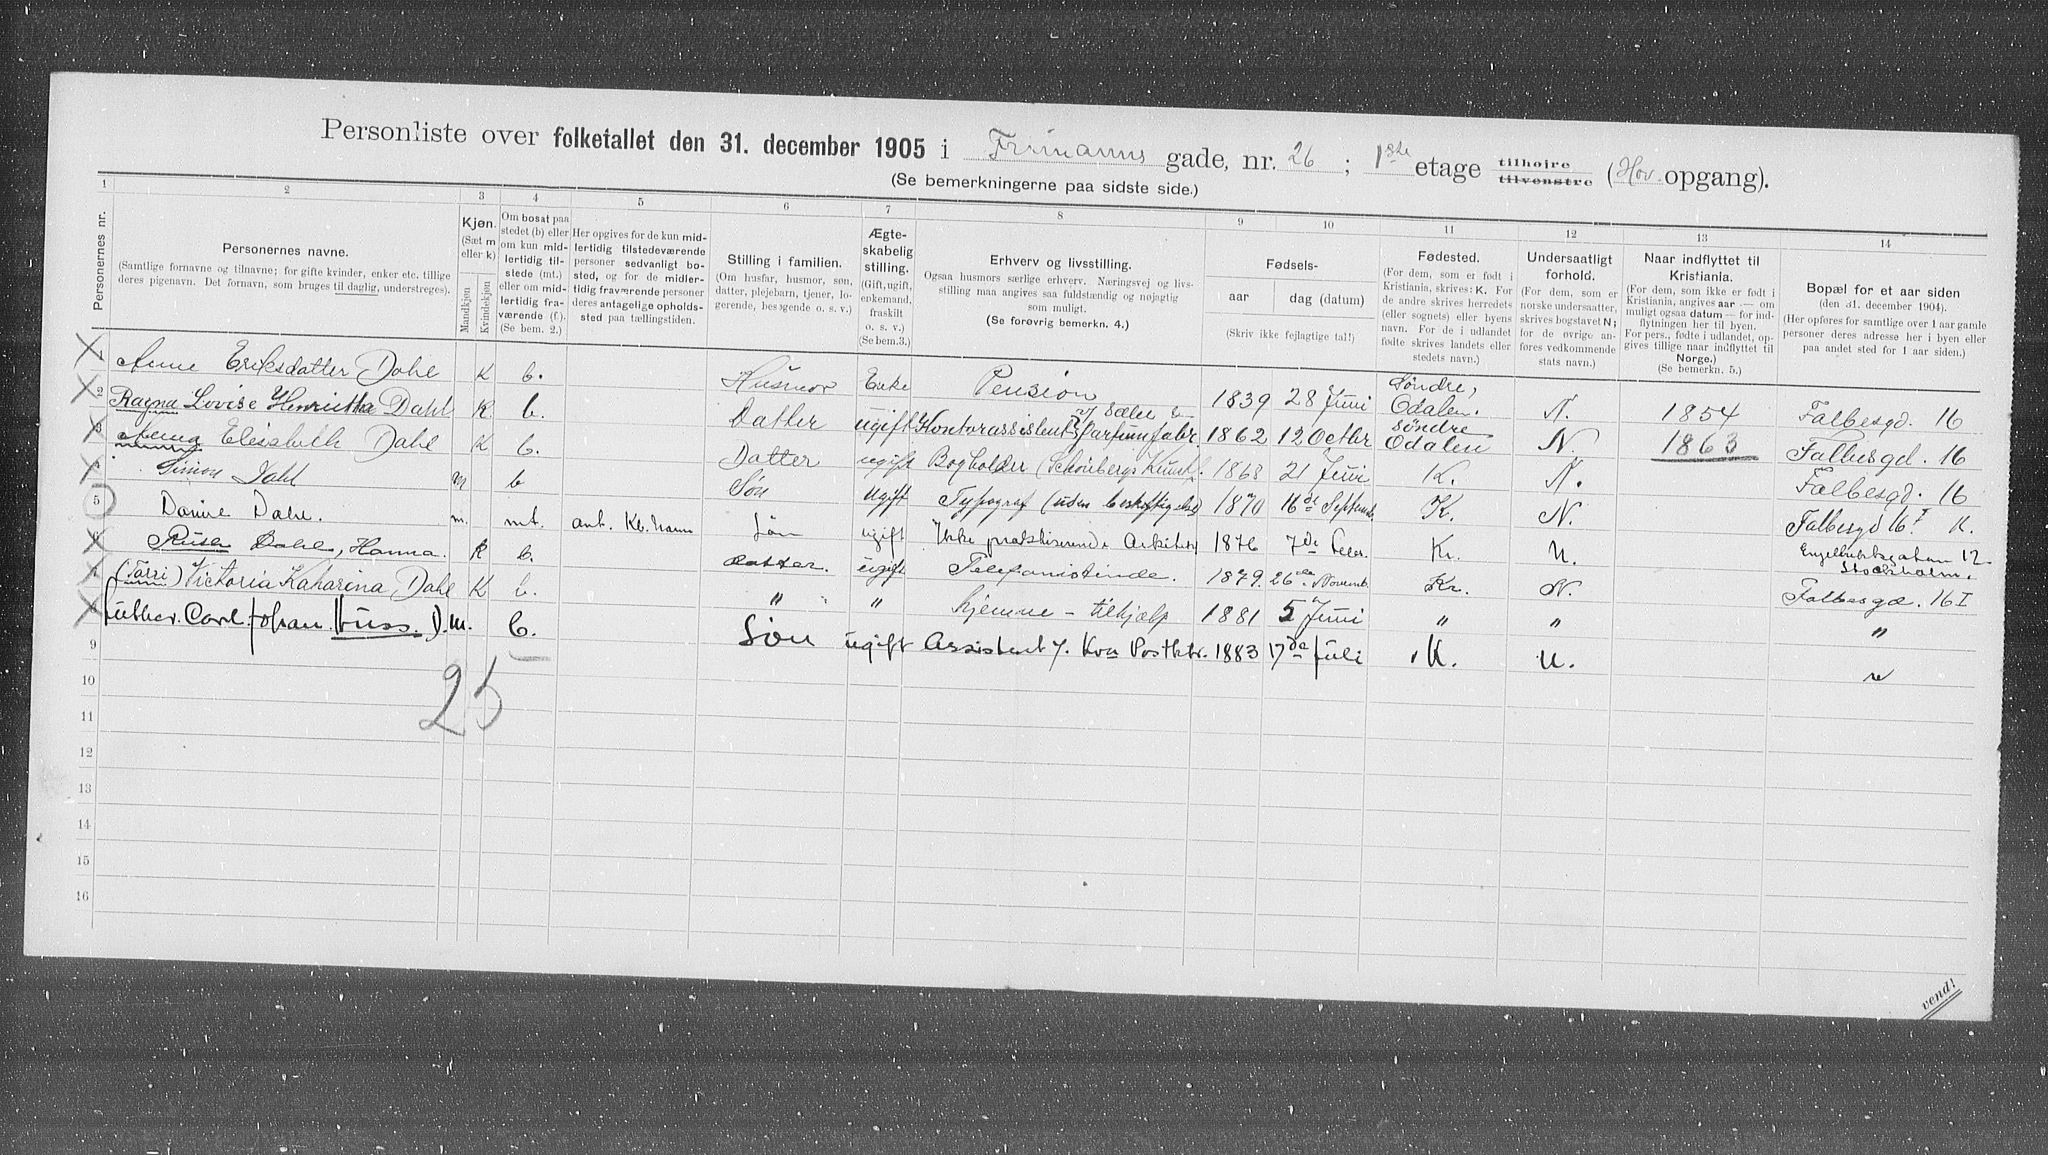 Personliste over folketallet den 31. december 1905 i Frimanns gade, nr. 26 ; 1ste etage tilhøire tilvenstre (Hov. opgang).
(Se bemerkningerne paa sidste side.)
1 2 3 4 5 6 7 8 9 10 11 12 13 14
Personernes nr.
Personernes navne.
(Samtlige fornavne og tilnavne; for gifte kvinder, enker etc. tillige
deres pigenavn. Det fornavn, som bruges til daglig, understreges).
Kjøn.
(Sæt m
eller k)
Mandkjøn
Kvindekjøn
Om bosat paa
stedet (b) eller
om kun mid-
lertidig til-
stede (mt.)
eller om mid-
lertidig fra-
værende (f.).
(Se bem. 2.)
Her opgives for de kun mid-
lertidig tilstedeværende
personer sedvanlig bo-
sted, og for de midler-
tidig fraværende personer
deres antagelige opholds-
sted paa tællingstiden.
Stilling i familien.
(Om husfar, husmor, søn,
datter, plejebarn, tjener, lo-
gerende, besøgende o. s. v.)
Ægte-
skabelig
stilling.
(Gift, ugift,
enkemand,
fraskilt
o. s. v.)
(Se bem.3.)
Erhverv og livsstilling.
Ogsaa husmors særlige erhverv. Næringsvej og livs-
stilling maa angives saa fuldstændig og nøjagtig
som muligt.
(Se forøvrig bemerkn. 4.)
Fødsels-
aar dag (datum)
(Skriv ikke fejlagtige tal!)
Fødested.
(For dem, som er født i
Kristiania, skrives: K. For
de andre skrives herredets
(eller sognets) eller byens
navn. For de i udlandet
fødte skrives landets eller
stedets navn.)
Undersaatligt
forhold.
(For dem, som er
norske undersaatter,
skrives bogstavet N;
for de øvrige an-
føres vedkommende
stats navn.)
Naar indflyttet til
Kristiania.
(For dem, som ikke er født i
Kristiania, angives aar — om
muligt ogsaa datum — for ind-
flytningen her til byen.
For pers., fødte i udlandet, op-
gives tillige naar indflyttet til
Norge.)
(Se bemerkn. 5.)
Bopæl for et aar siden
(den 31. december 1904).
(Her opføres for samtlige over 1 aar gamle
personer deres adresse her i byen eller
paa andet sted for 1 aar siden.)
1 Anne Eriksdatter Dahl K b. Husmor Enke Pension 1839 28 Juni Søndre, Odalen. N. 1854 Falbesgd. 16
2 Ragna Lovise Henriette Dahl K b. Datter ugift Kontorassistent Parfumfabr 1862 12 Octbr søndre Odalen N 1863 Falbesgd. 16
3 Anna Elisabeth Dahl K b. Datter ugift Bogholder (Schønbergs 1868 21 Juni K. N. Falbesgd. 16
4 Simon Dahl m b Søn ugift Typograf (uden beskjftigelse) 1870 16de Septemb. K. N. Falbesgd 16 I K.
5 Dahl. m. mt. Søn ugift Ikke praktiserende Arkitekt 1876 7de Kr. N. 12 Stockholm.
6 Dahl, Hanna. K b. datter. ugift Telefonistinde. 1879. 26de Novemb. Kr. N. Falbesgd. 16 I
7 Victoria Katharina Dahl K b. " " hjemme - tilhjælp 1881 5 Juni " " "
8 Luther. Carl. Johan. Huss. D. m. b. Søn ugift Assistent 1883 17de Juli K. N. "
9
10
11
12
13
14
15
16
25
vend!